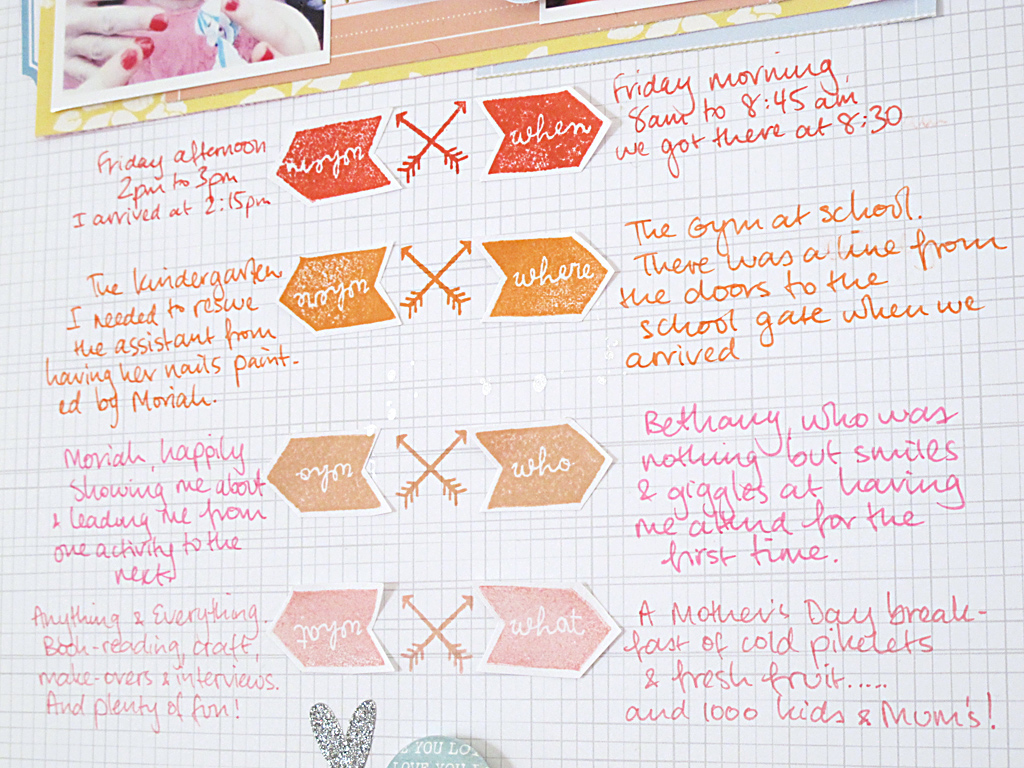 Friday afternoon
2pm to 3pm
I arrived at 2:15pm
when
when
Friday morning,
8am to 8:45 am
we got there at 8:30
The Kindergarten
I needed to rescue
the assistant from
having her nails paint-
ed by Moriah.
where
where
The Gym at school.
There was a line from
the doors to the
school gate when we
arrived
Moriah, happily
showing me about
& leading me from
one activity to the
next.
who
who
Bethany, who was
nothing but smiles
& giggles at having
me attend for the
first time.
Anything & Everything..
Book-reading, craft,
make-overs & interviews.
And plenty of fun!
what
what
A Mother's Day break-
fast of cold pikelets
& fresh fruit.....
and 1000 kids & Mum's!
YOU LO
LOVE YOU